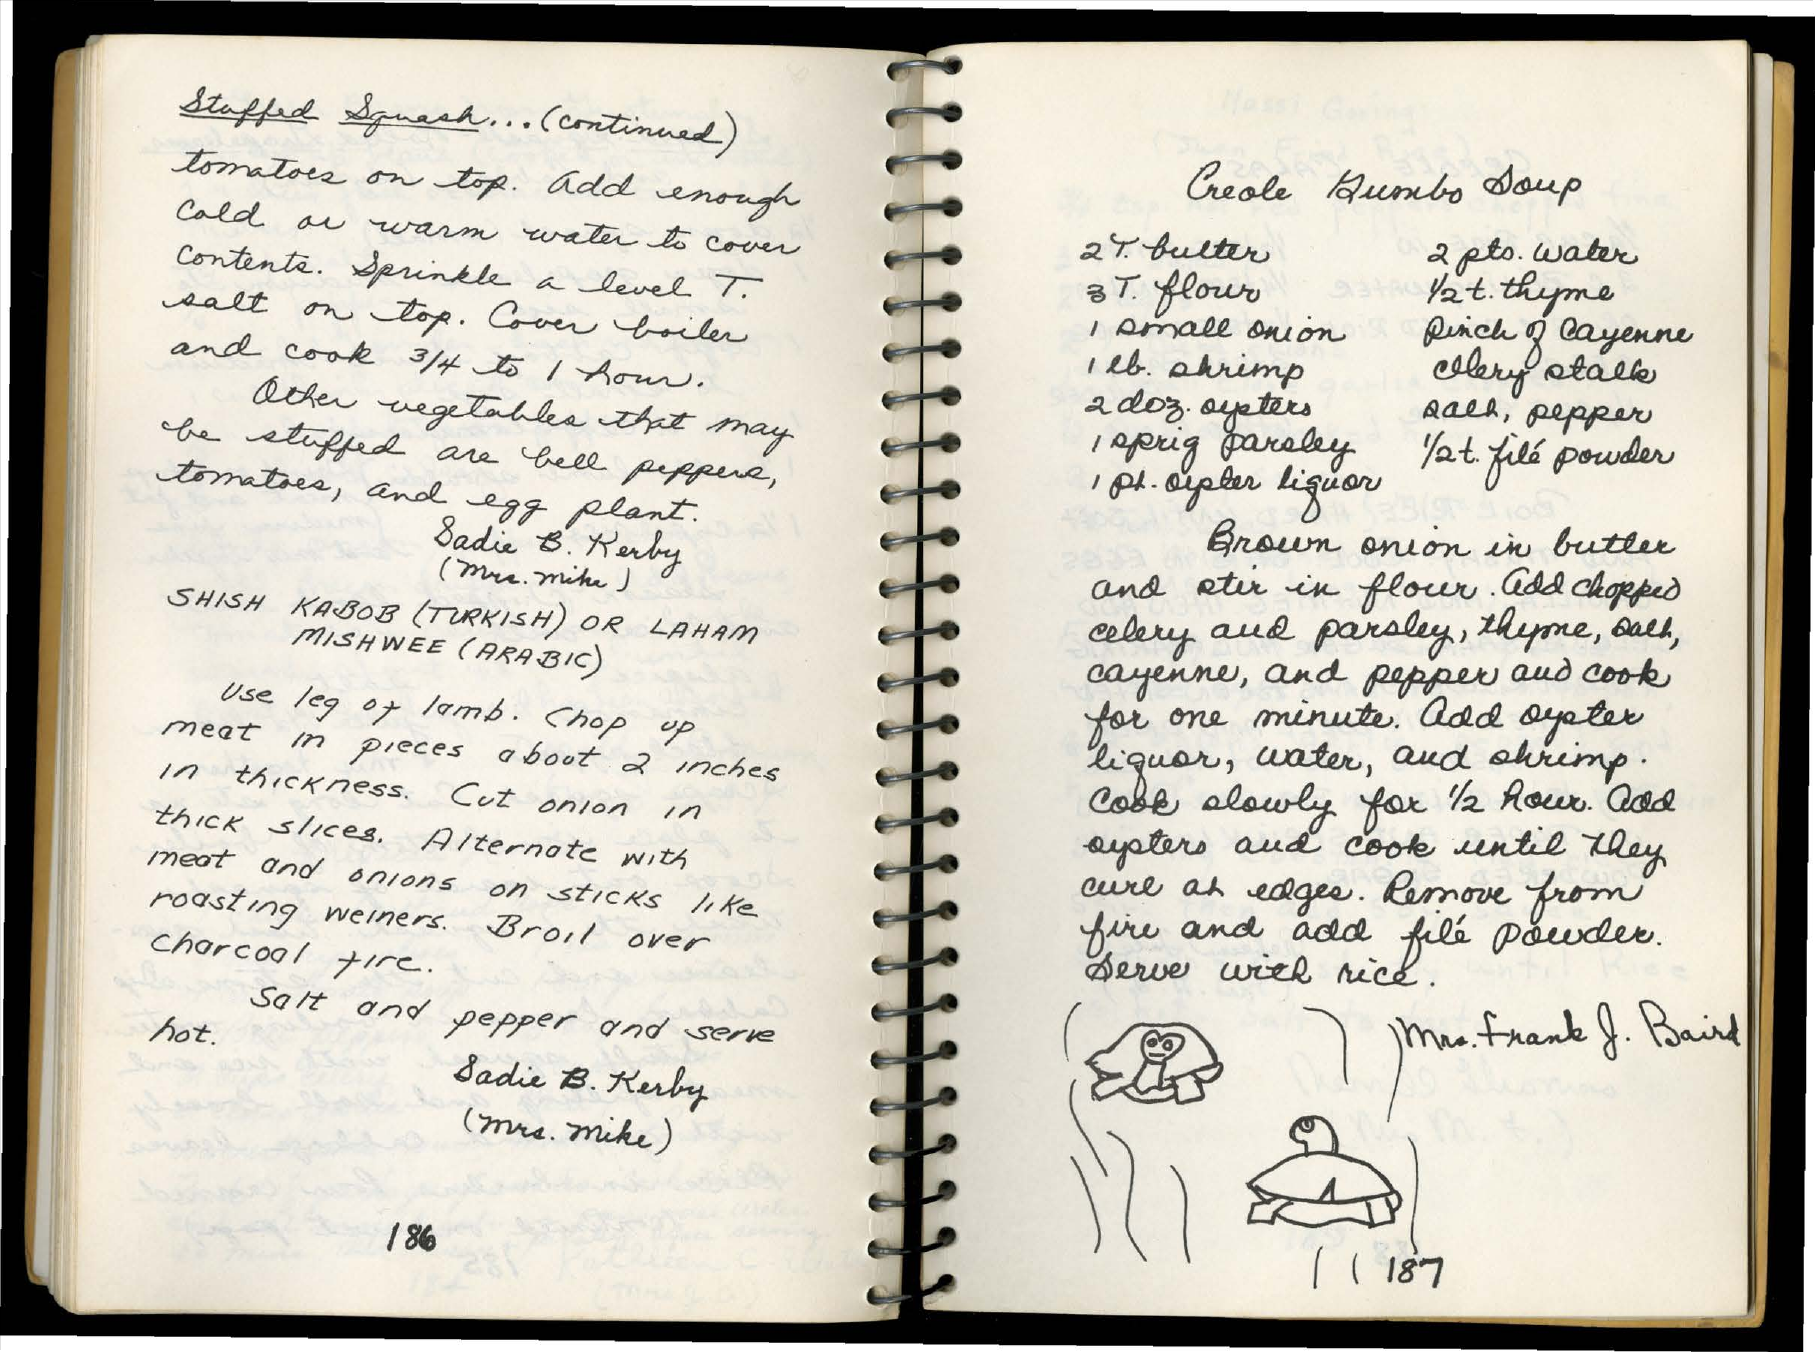 Stuffed Squash... (continued)
tomatoes on top. Add enough
cold or warm water to cover
contents. Sprinkle a level T.
salt on top. Cover boiler
and cook 3/4 to 1 hour.
Other vegetables that may
be stuffed are bell peppers,
tomatoes, and egg plant.
Sadie B. Kerby
(Mrs. Mike)
SHISH KABOB (TURKISH) OR LAHAM
MISHWEE (ARABIC)
Use leg of lamb. Chop up
meat in pieces about 2 inches
in thickness. Cut onion in
thick slices. Alternate with
meat and onions on sticks like
roasting weiners. Broil over
charcoal fire.
Salt and pepper and serve
hot.
Sadie B. Kerby
(Mrs. Mike)
186
Creole Gumbo Soup
2 T. butter
3 T. flour
1 small onion
1 lb. shrimp
2 doz. oysters
1 sprig parsley
1 pt. oyster liquor
2 pts. water
1/2 t. thyme
Pinch of Cayenne
celery stalk
salt, pepper
1/2 t. filé powder
Brown onion in butter
and stir in flour. Add chopped
celery and parsley, thyme, salt,
cayenne, and pepper and cook
for one minute. Add oyster
liquor, water, and shrimp.
Cook slowly for 1/2 hour. Add
oysters and cook until they
curl at edges. Remove from
fire and add filé powder.
Serve with rice.
Mrs. Frank J. Baird
187